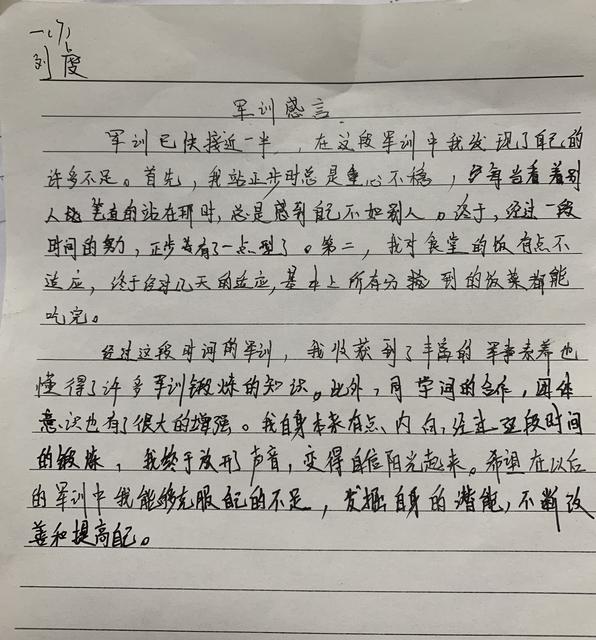 一(7)
刘虔
军训感言
军训已快接近一半，在这段军训中我发现了自己的
许多不足。首先，我站正步时总是重心不稳，每当看着别
人笔直的站在那时，总是感到自己不如别人。终于，经过一段
时间的努力，正步有了一点型了。第二，我对食堂的饭有点不
适应，终于经过几天的适应，基本上所有分到的饭菜都能
吃完。
经过这段时间的军训，我收获到了丰富的军事素养也
懂得了许多军训锻炼的知识。此外，同学间的合作，团体
意识也有了很大的增强。我自身本来有点内向，经过这段时间
的锻炼，我终于放开声音，变得自信阳光起来。希望在以后
的军训中我能够克服自己的不足，发掘自身的潜能，不断改
善和提高自己。